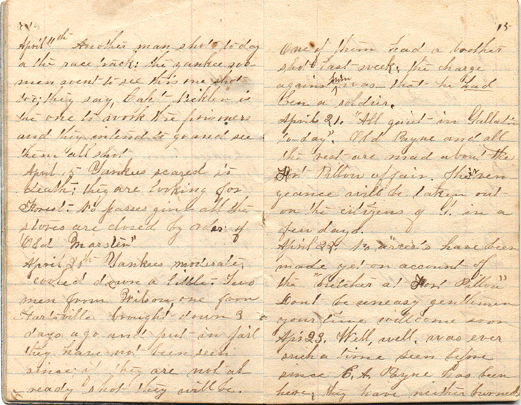 April 11th Another man shot to day
a the race track; the yankee wo-
men went to see this one shot
too; they say, Capt Nicklin is
the one to work the
and they intend to go and see
them all shot
April Yankees scared to
death; they are looking for
Forest - No passes given all the
stores are closed by order of
"Old Maslin"
April 20th Yankees moderate,
cooled down a little. Two
men from Wilson, one from
Hartsville brought down 3
days ago and put in jail
they have not been seen
since; if they are not al-
ready shot they will be.
15
One of them had a brother
shot last week, the charge
against him was that he had
been a soldier.
April 21. "All quiet in Gallatin
to day". Old Payne and all
the rest are mad about the
Fort Pillow affair. The ven
geance will be taken out
on the citizens of G. in a
few days.
April 22 No arrests have been
made yet on account of
the "butcher at Fort Pillow"
Dont be uneasy gentlemen
your time will come soon
Apr 23. Well, well, was ever
such a time seen before
since E. A. Payne has been
here, they have neither burned